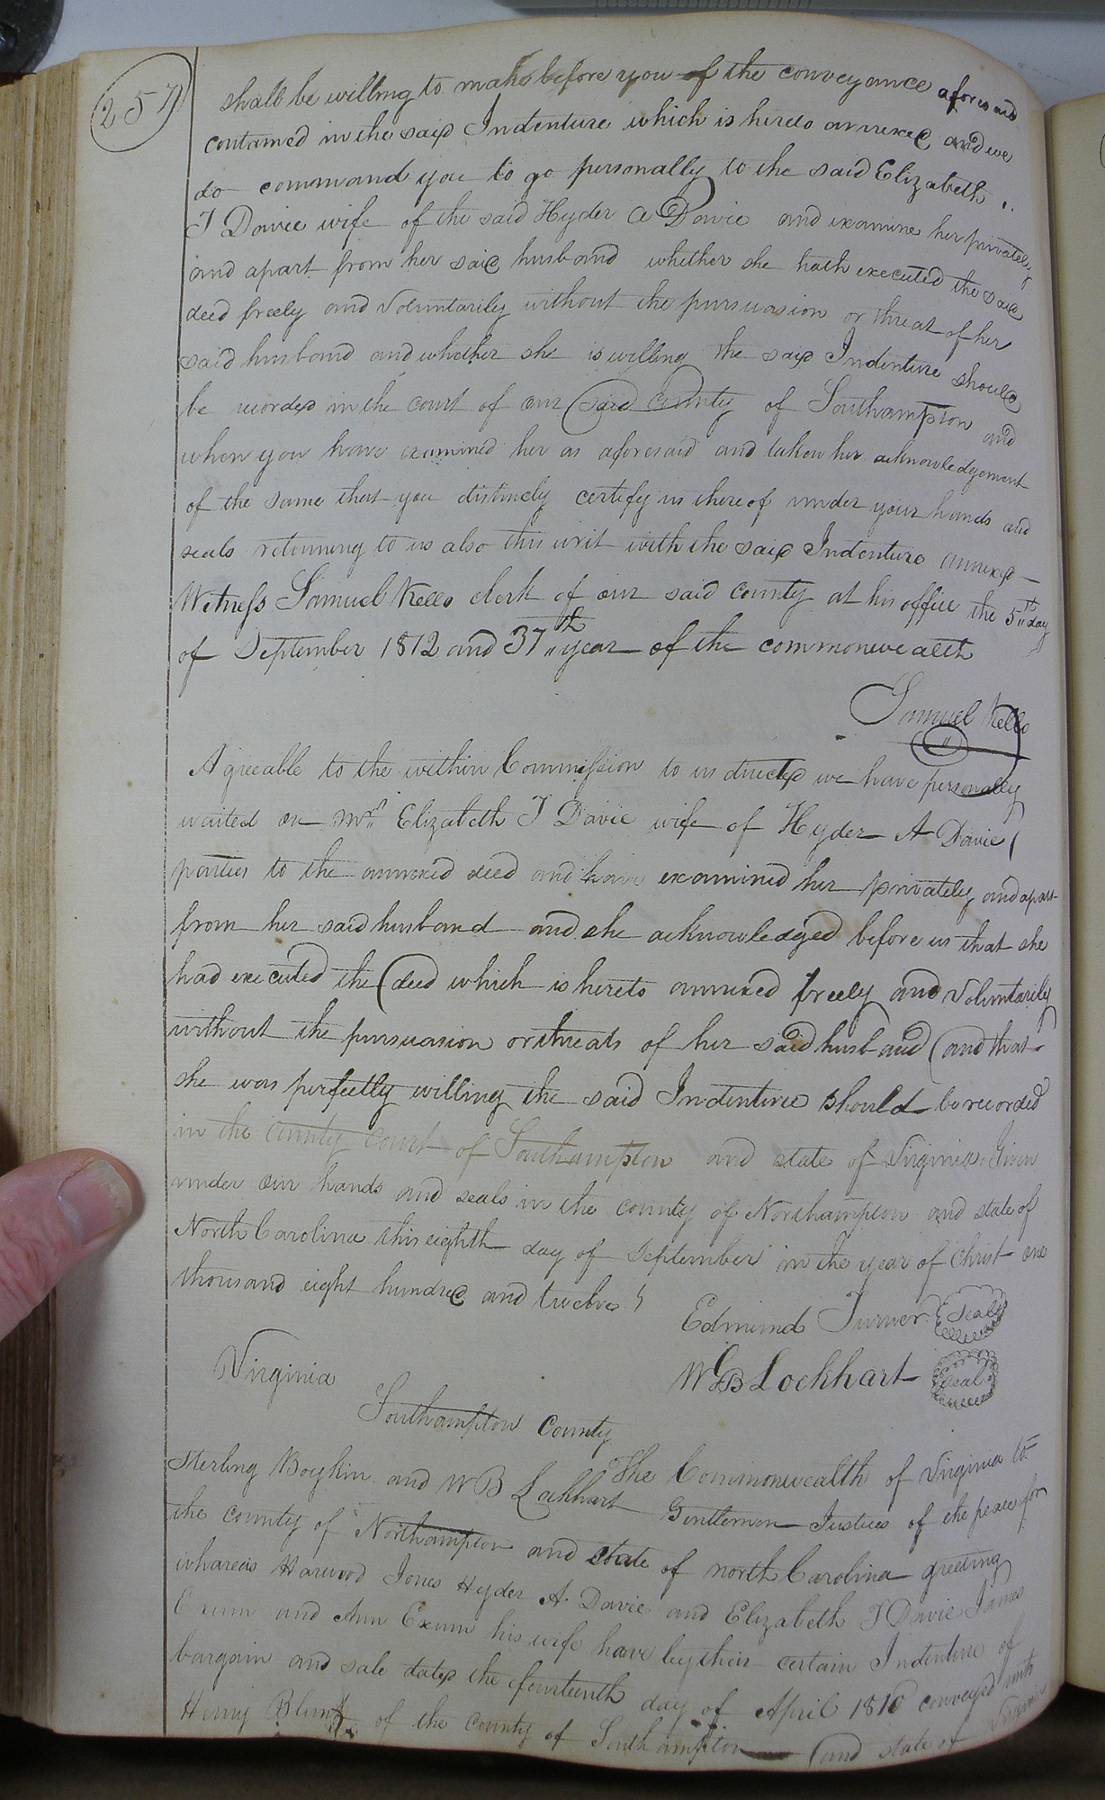 257
shall be willing to make before you of the conveyance aforesaid
contained in the said Indenture which is hereto annexed and we
do command you to go personally to the said Elizabeth
J Davie wife of the said Hyder A Davie and examine her privately
and apart from her said husband whether she hath executed the said
deed freely and Voluntarily without the pursuasion or threat of her
said husband and whether she is willing the said Indenture should
be recorded in the court of our said county of Southampton and
when you have examined her as aforesaid and taken her acknowledgement
of the same that you distinctly certify us thereof under your hands and
seals returning to us also this writ with the said Indenture annexed
Witness Samuel Kello clerk of our said county at his office the 5th day
of September 1812 and 37th year of the commonwealth
Samuel Kello
Agreeable to the within Commission to us directed we have personally
waited on Mrs Elizabeth J Davie wife of Hyder A Davie
parties to the annexed deed and have examined her privately and apart
from her said husband and she acknowledged before us that she
had executed the deed which is hereto annexed freely and Voluntarily
without the pursuasion or threats of her said husband and that
she was perfectly willing the said Indenture should be recorded
in the county court of Southampton and state of Virginia Given
under our hands and seals in the county of Northampton and state of
North Carolina this eighth day of September in the year of Christ one
thousand eight hundred and twelve
Edmund Turner Seal
WB Lockhart Seal
Virginia
Southampton County
The Commonwealth of Virginia to
Sterling Boykin and WB Lockhart Gentlemen Justices of the peace for
the county of Northampton and state of north Carolina greeting
whareas Harwood Jones Hyder A Davie and Elizabeth J Davie James
Exum and Ann Exum his wife have by their certain Indenture of
bargain and sale dated the fourteenth day of April 1810 conveyed unto
Henry Blunt of the county of Southampton and state of Virginia